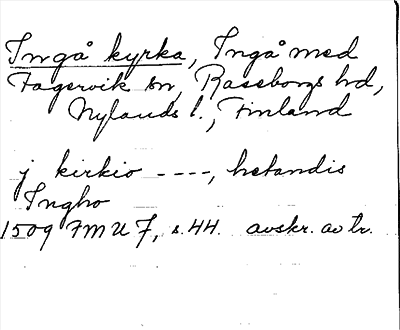 Ingå kyrka, Ingå med
Fagervik sn, Raseborgs hd,
Nylands l., Finland
j kirkio ----, hetandis
Ingho
1509 FMU 7, s. 44. avskr. av tr.